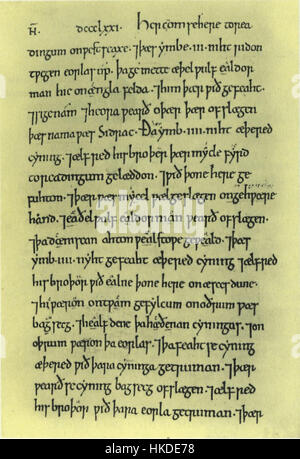 AN. DCCCLXXI. Her com se here to rea
dingum on westseaxe. ⁊ þæs ymbe .iii. niht ridon
twegen eorlas up. þa gemette æþelwulf ealdor
man hie on engla felda. ⁊ him þær wið gefeaht.
⁊ sige nam. ⁊ heora wearð oþer þær ofslægen
þæs nama wæs Sidrac. Ða ymb .iiii. niht æþered
cyning. ⁊ ælfred his broþer þær mycle fyrd
to readingum gelæddon. ⁊ wið þone here ge
fuhton. ⁊ þær wæs mycel wælgeslægen on gehwæþere
hand. ⁊ æþelwulf ealdorman wearð ofslægen.
⁊ þa deniscan ahton wælstowe geweald. ⁊ þæs
ymb .iiii. niht gefeaht æþered cyning ⁊ ælfred
his broþur wið ealne þone here on æsces dune.
⁊ hi wæron on twam gefylcum on oðrum wæs
bagsecg. ⁊ healfdene þa hæðenan cyningas. ⁊ on
oþrum wæron þa eorlas. ⁊ þa feaht se cyning
æþered wið þara cyninga getruman. ⁊ þær
wearð se cyning bagsecg ofslægen. ⁊ ælfred
his broþor wið þara eorla getruman. ⁊ þær
alamy stock photo
HKDE78
www.alamy.com